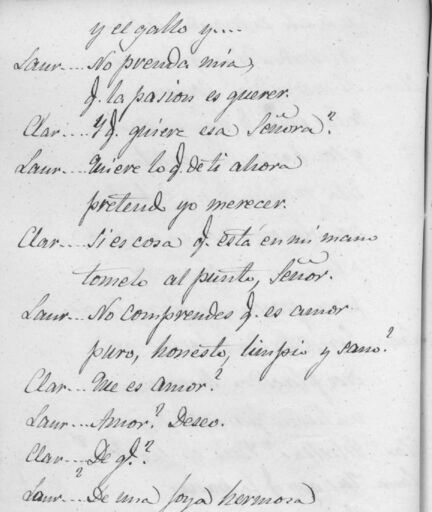 y el gallo y....
Laur... No prenda mia,
q. la pasion es querer.
Clar... Y q. quiere esa Señora?
Laur... Quiere lo q. de ti ahora
pretendo yo merecer.
Clar... Si es cosa q. está en mi mano
tomelo al punto, Señor.
Laur... No comprendes q. es amor
puro, honesto, limpio y sano?
Clar... Que es amor?
Laur... Amor? Deseo.
Clar... De q.?
Laur... De una joya hermosa